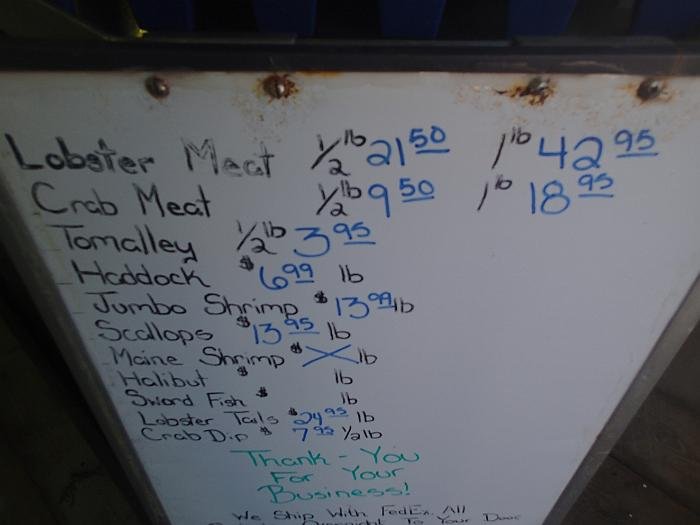 Lobster Meat 1/2 lb 21 50 1 lb 42 95
Crab Meat 1/2 lb 9 50 1 lb 18 95
Tomalley 1/2 lb 3 95
Haddock $ 6 99 lb
Jumbo Shrimp $ 13 99 lb
Scallops $ 13 95 lb
Maine Shrimp $ X lb
Halibut $ lb
Sword Fish $ lb
Lobster Tails $ 24 95 lb
Crab Dip $ 7 95 1/2 lb
Thank-You
For Your
Business!
We Ship With FedEx. All
Overnight To Your Door